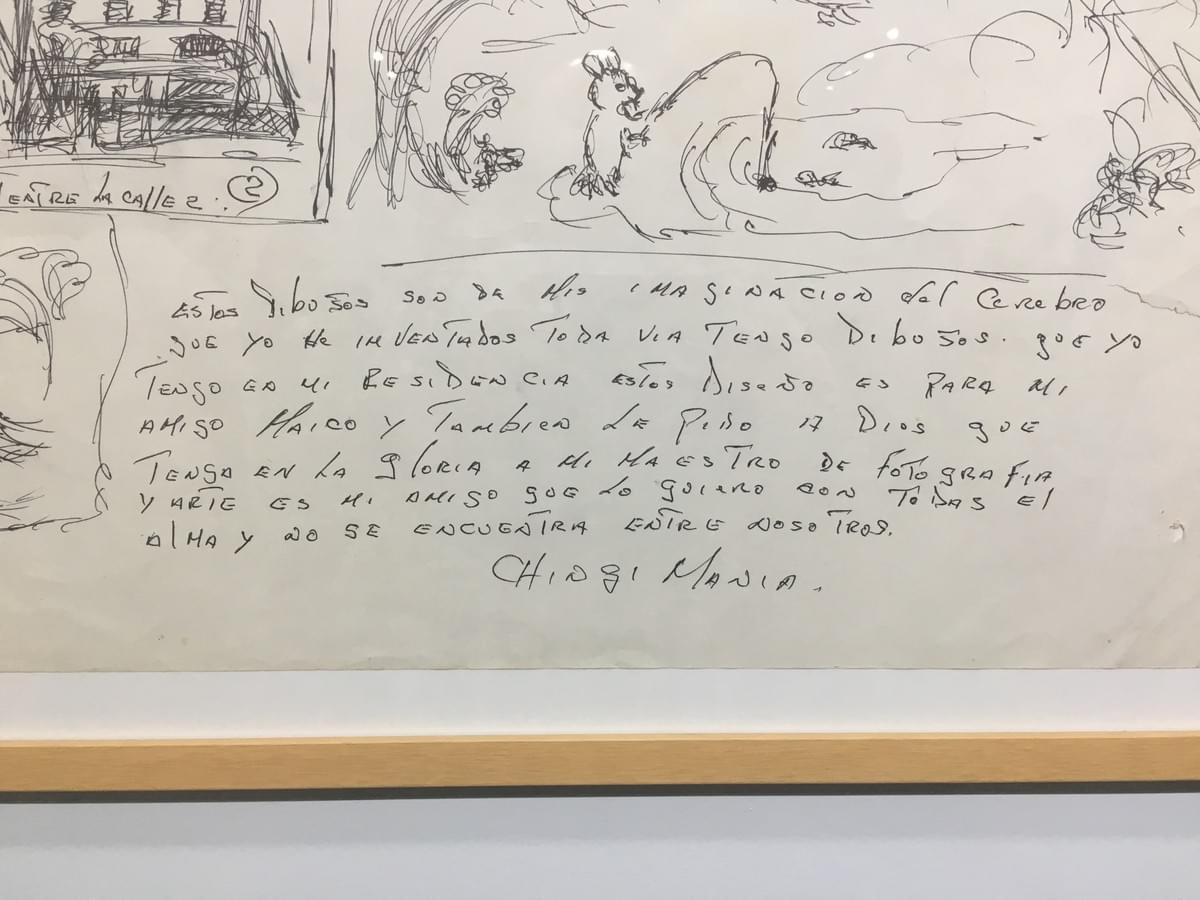 ENTRE LA CALLE 2.. 2
ESTOS DIBUJOS SON DE MIS IMAGINACION del Cerebro
QUE YO HE INVENTADOS TODA VIA TENGO DIBUJOS. QUE YO
TENGO EN MI RESIDENCIA ESTOS DISEÑO ES PARA MI
AMIGO MAICO Y TAMBIEN LE PIDO A DIOS QUE
TENGA EN LA GLORIA A MI MAESTRO DE FOTOGRAFIA
Y ARTE ES MI AMIGO QUE LO QUIERO CON TODAS El
AlMA Y NO SE ENCUENTRA ENTRE NOSOTROS.
CHINGI MANIA.